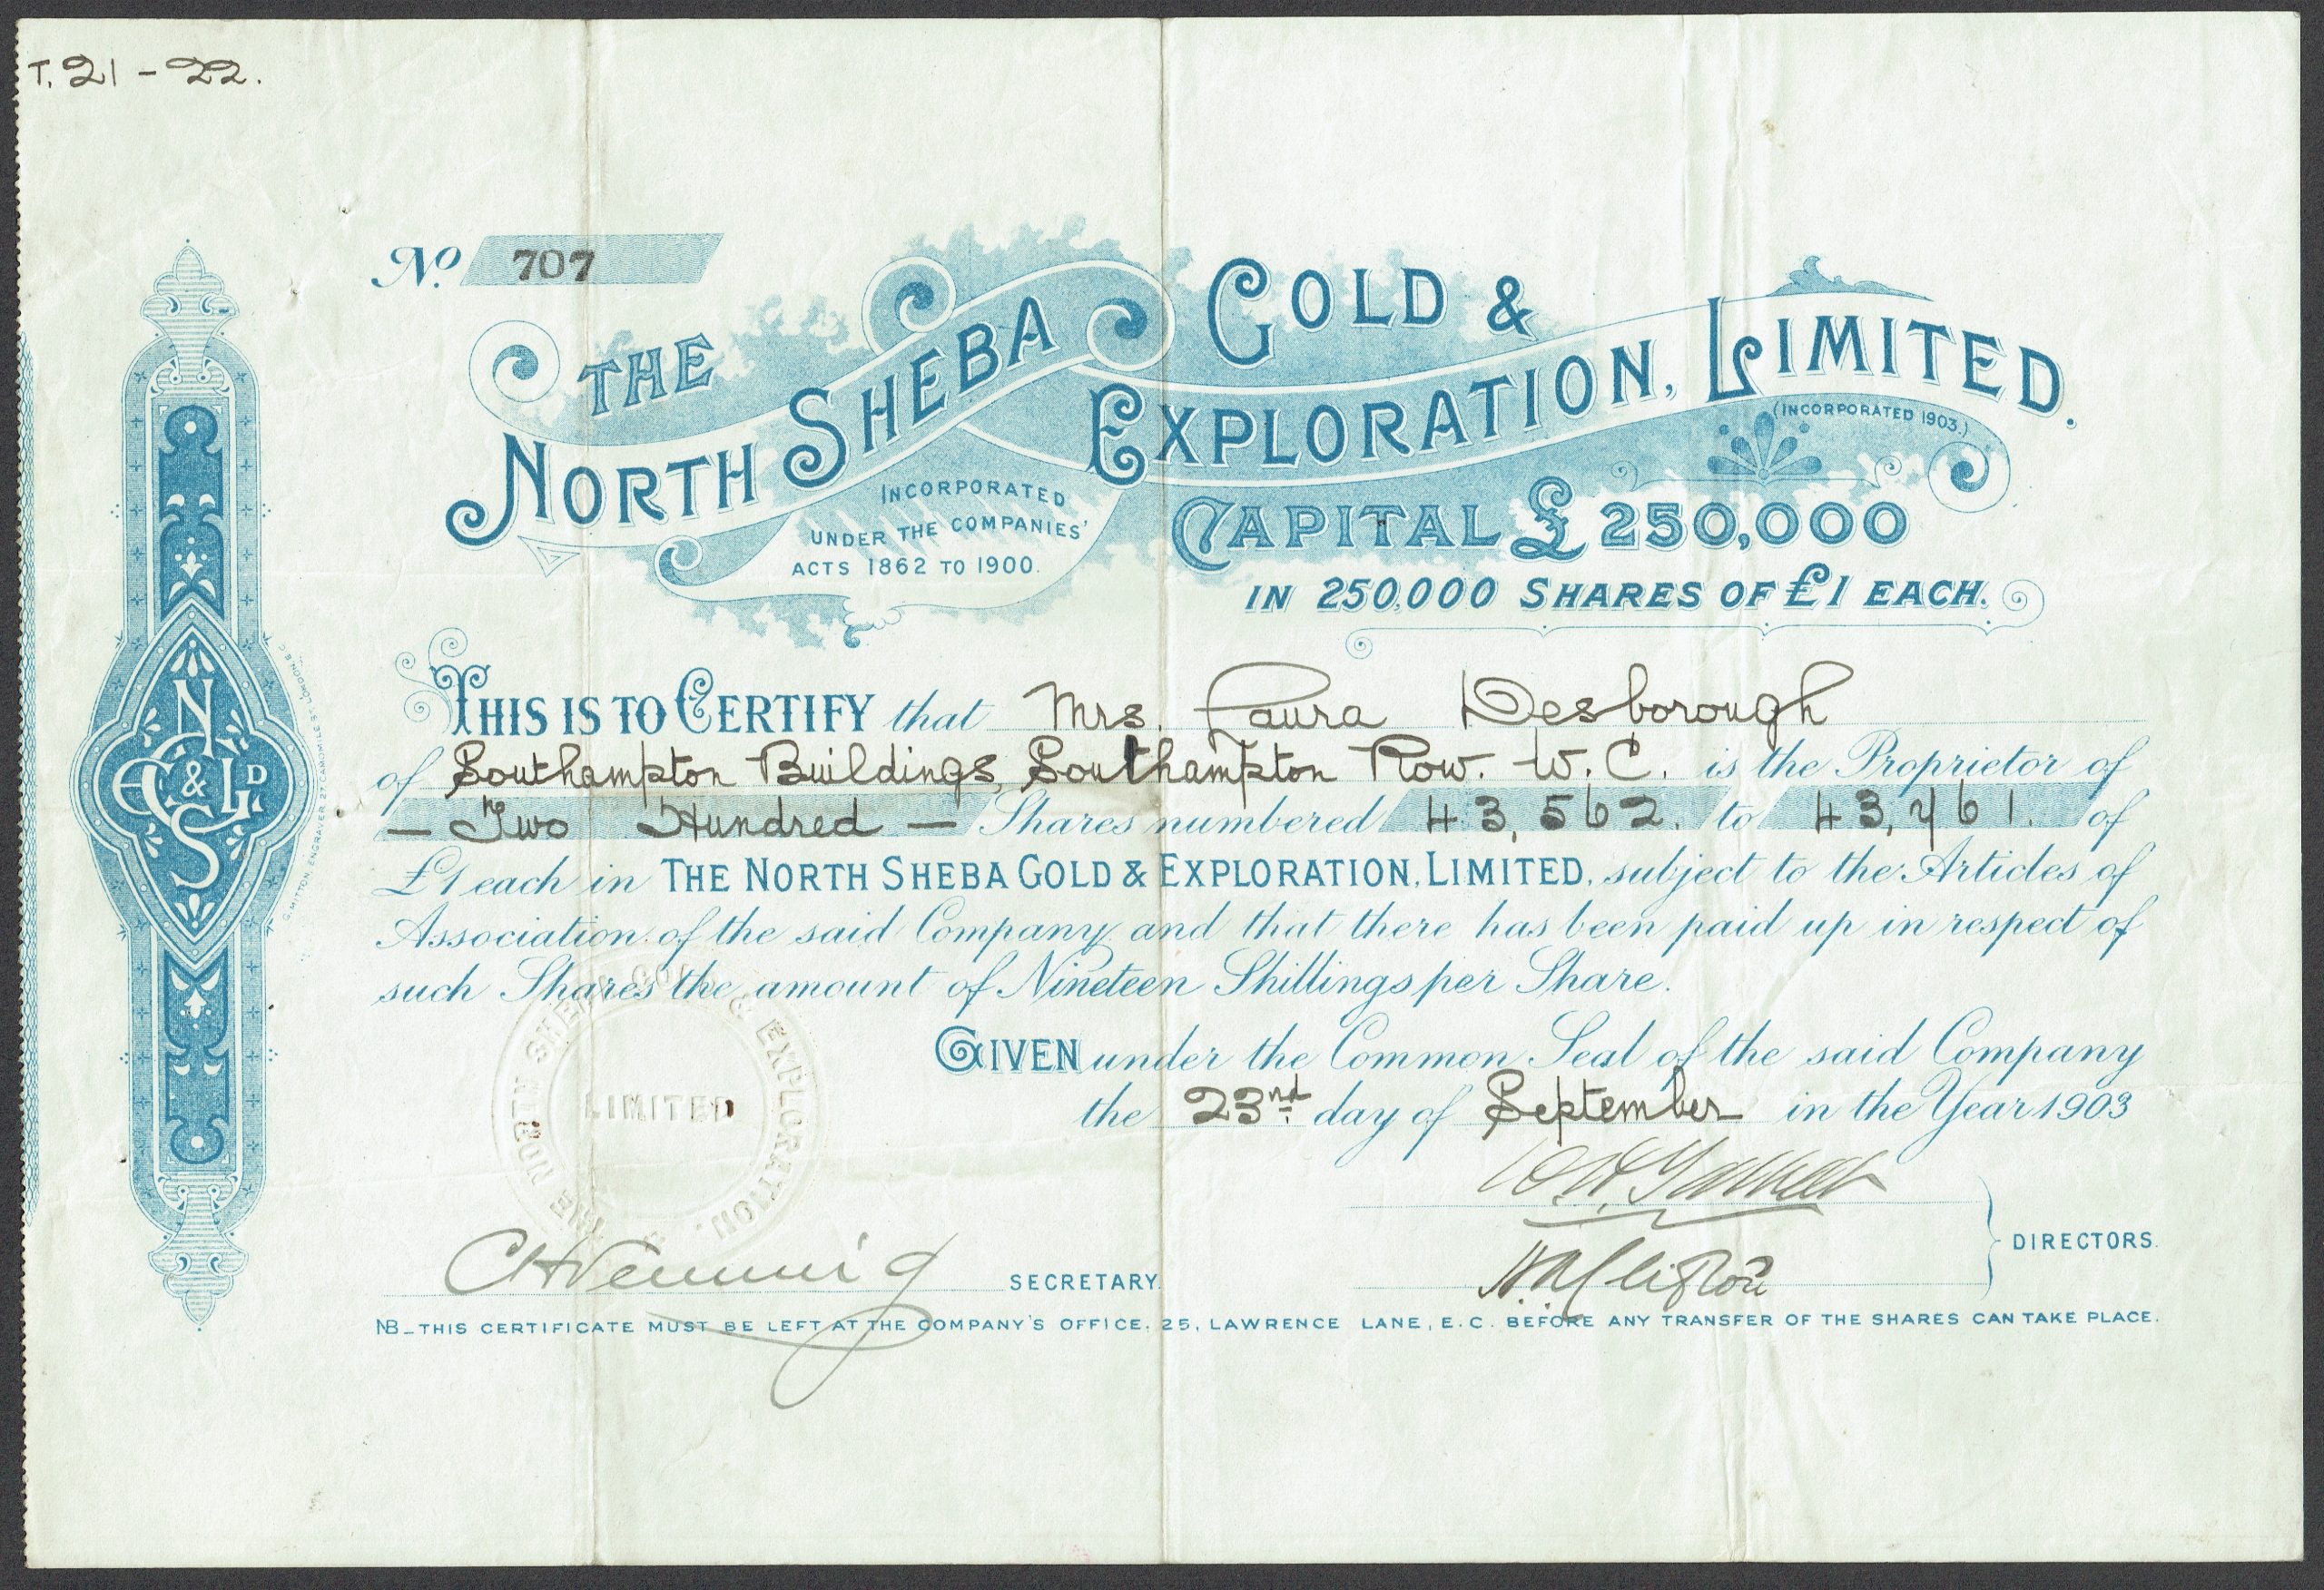 T. 21 - 22.
No. 707
THE
NORTH SHEBA
GOLD &
EXPLORATION, LIMITED.
(INCORPORATED 1903.)
INCORPORATED
UNDER THE COMPANIES'
ACTS 1862 TO 1900.
CAPITAL £250,000
IN 250,000 SHARES OF £1 EACH.
THIS IS TO CERTIFY that Mrs. Laura Desborough
of Southampton Buildings, Southampton Row. W.C. is the Proprietor of
— Two Hundred — Shares numbered 43,562. to 43,761. of
£1 each in THE NORTH SHEBA GOLD & EXPLORATION, LIMITED, subject to the Articles of
Association of the said Company and that there has been paid up in respect of
such Shares the amount of Nineteen Shillings per Share.
GIVEN under the Common Seal of the said Company
the 23rd day of September in the Year 1903
THE NORTH SHEBA GOLD & EXPLORATION,
LIMITED
DIRECTORS.
SECRETARY.
NB_THIS CERTIFICATE MUST BE LEFT AT THE COMPANY'S OFFICE, 25, LAWRENCE LANE, E.C. BEFORE ANY TRANSFER OF THE SHARES CAN TAKE PLACE.
N S G & E LD
G. MITTON, ENGRAVER 27 CAMOMILE ST LONDON E.C.